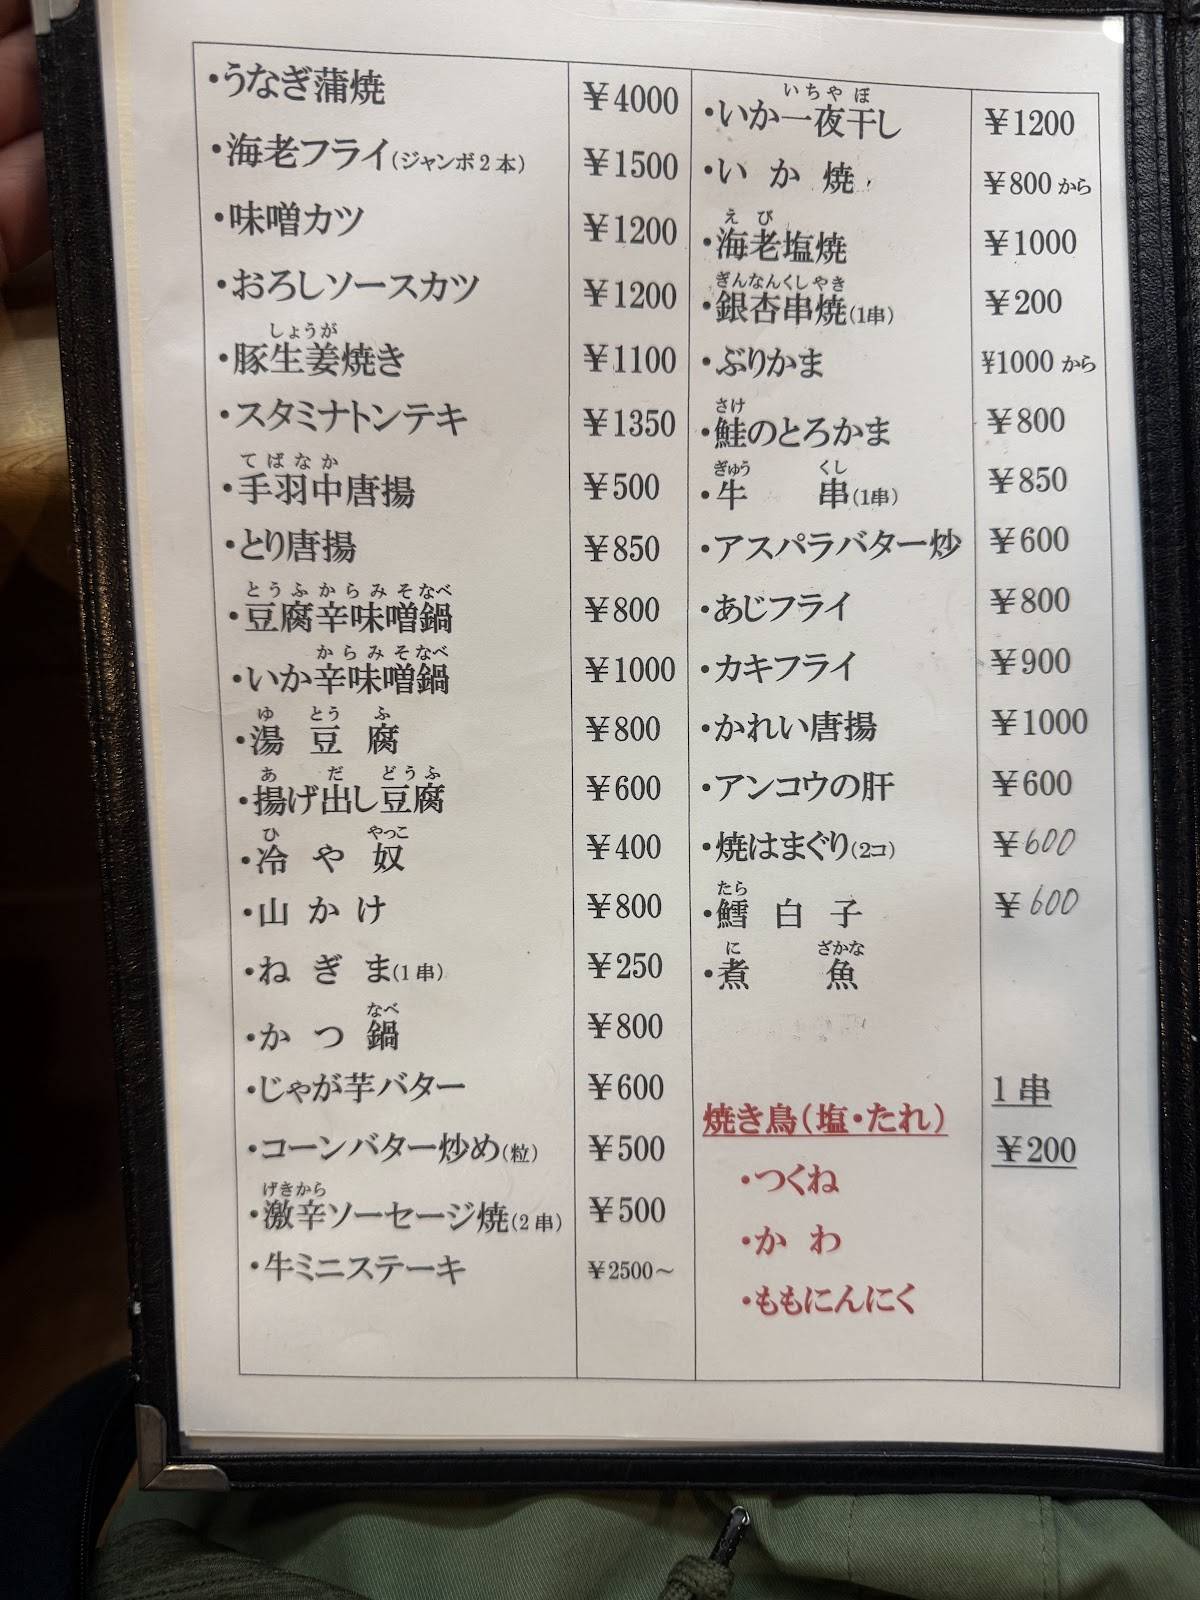 ・うなぎ蒲焼 ¥4000
・海老フライ(ジャンボ2本) ¥1500
・味噌カツ ¥1200
・おろしソースカツ ¥1200
しょうが
・豚生姜焼き ¥1100
・スタミナトンテキ ¥1350
てばなか
・手羽中唐揚 ¥500
・とり唐揚 ¥850
とうふからみそなべ
・豆腐辛味噌鍋 ¥800
からみそなべ
・いか辛味噌鍋 ¥1000
ゆ とう ふ
・湯豆腐 ¥800
あ だ どうふ
・揚げ出し豆腐 ¥600
ひ やっこ
・冷や奴 ¥400
・山かけ ¥800
・ねぎま(1串) ¥250
なべ
・かつ鍋 ¥800
・じゃが芋バター ¥600
・コーンバター炒め(粒) ¥500
げきから
・激辛ソーセージ焼(2串) ¥500
・牛ミニステーキ ¥2500～
いちやぼ
・いか一夜干し ¥1200
・いか焼 ¥800から
えび
・海老塩焼 ¥1000
ぎんなんくしやき
・銀杏串焼(1串) ¥200
・ぶりかま ¥1000から
さけ
・鮭のとろかま ¥800
ぎゅう くし
・牛串(1串) ¥850
・アスパラバター炒 ¥600
・あじフライ ¥800
・カキフライ ¥900
・かれい唐揚 ¥1000
・アンコウの肝 ¥600
・焼はまぐり(2コ) ¥600
たら
・鱈白子 ¥600
に ざかな
・煮魚
焼き鳥(塩・たれ) 1串 ¥200
・つくね
・かわ
・ももにんにく